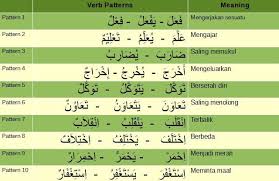 Verb Patterns Meaning
Pattern 1 فَعَلَ - يَفْعَلُ - فِعْلٌ Mengerjakan sesuatu
Pattern 2 عَلَّمَ - يُعَلِّمُ - تَعْلِيْمٌ Mengajar
Pattern 3 ضَارَبَ - يُضَارِبُ Saling memukul
Pattern 4 أَخْرَجَ - يُخْرِجُ - إِخْرَاجٌ Mengeluarkan
Pattern 5 تَوَكَّلَ - يَتَوَكَّلُ - تَوَكُّلٌ Berserah diri
Pattern 6 تَعَاوَنَ - يَتَعَاوَنُ - تَعَاوُنٌ Saling menolong
Pattern 7 اِنْقَلَبَ - يَنْقَلِبُ - اِنْقِلَابٌ Terbalik
Pattern 8 اِخْتَلَفَ - يَخْتَلِفُ - اِخْتِلَافٌ Berbeda
Pattern 9 اِحْمَرَّ - يَحْمَرُّ - اِحْمِرَارٌ Menjadi merah
Pattern 10 اِسْتَغْفَرَ - يَسْتَغْفِرُ - اِسْتِغْفَارٌ Meminta maaf